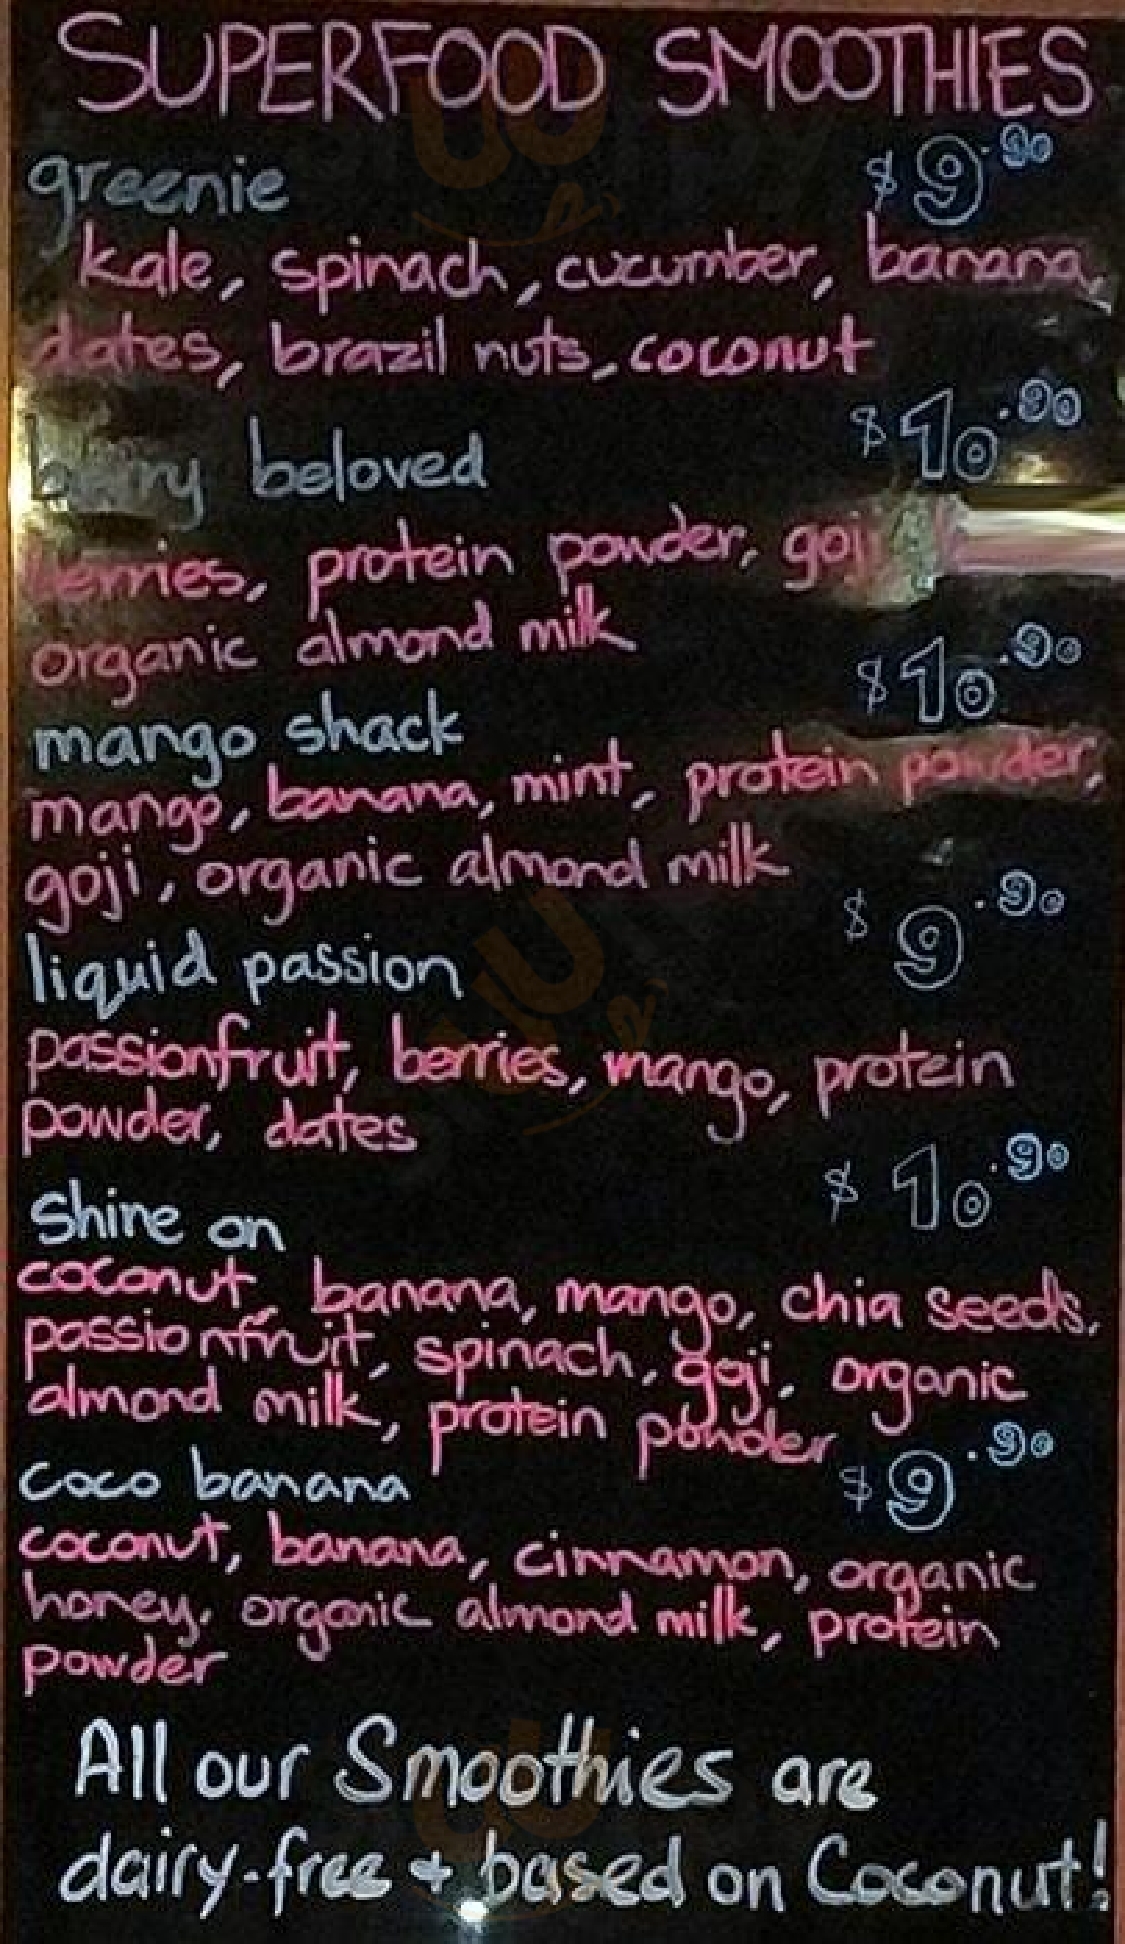 SUPERFOOD SMOOTHIES
greenie $9.90
kale, spinach, cucumber, banana,
dates, brazil nuts, coconut
berry beloved $10.90
berries, protein powder, goji
organic almond milk
mango shack $10.90
mango, banana, mint, protein powder,
goji, organic almond milk
liquid passion $9.90
passionfruit, berries, mango, protein
powder, dates
Shine on $10.90
coconut, banana, mango, chia seeds,
passionfruit, spinach, goji, organic
almond milk, protein powder
coco banana $9.90
coconut, banana, cinnamon, organic
honey, organic almond milk, protein
powder
All our Smoothies are
dairy-free + based on Coconut!